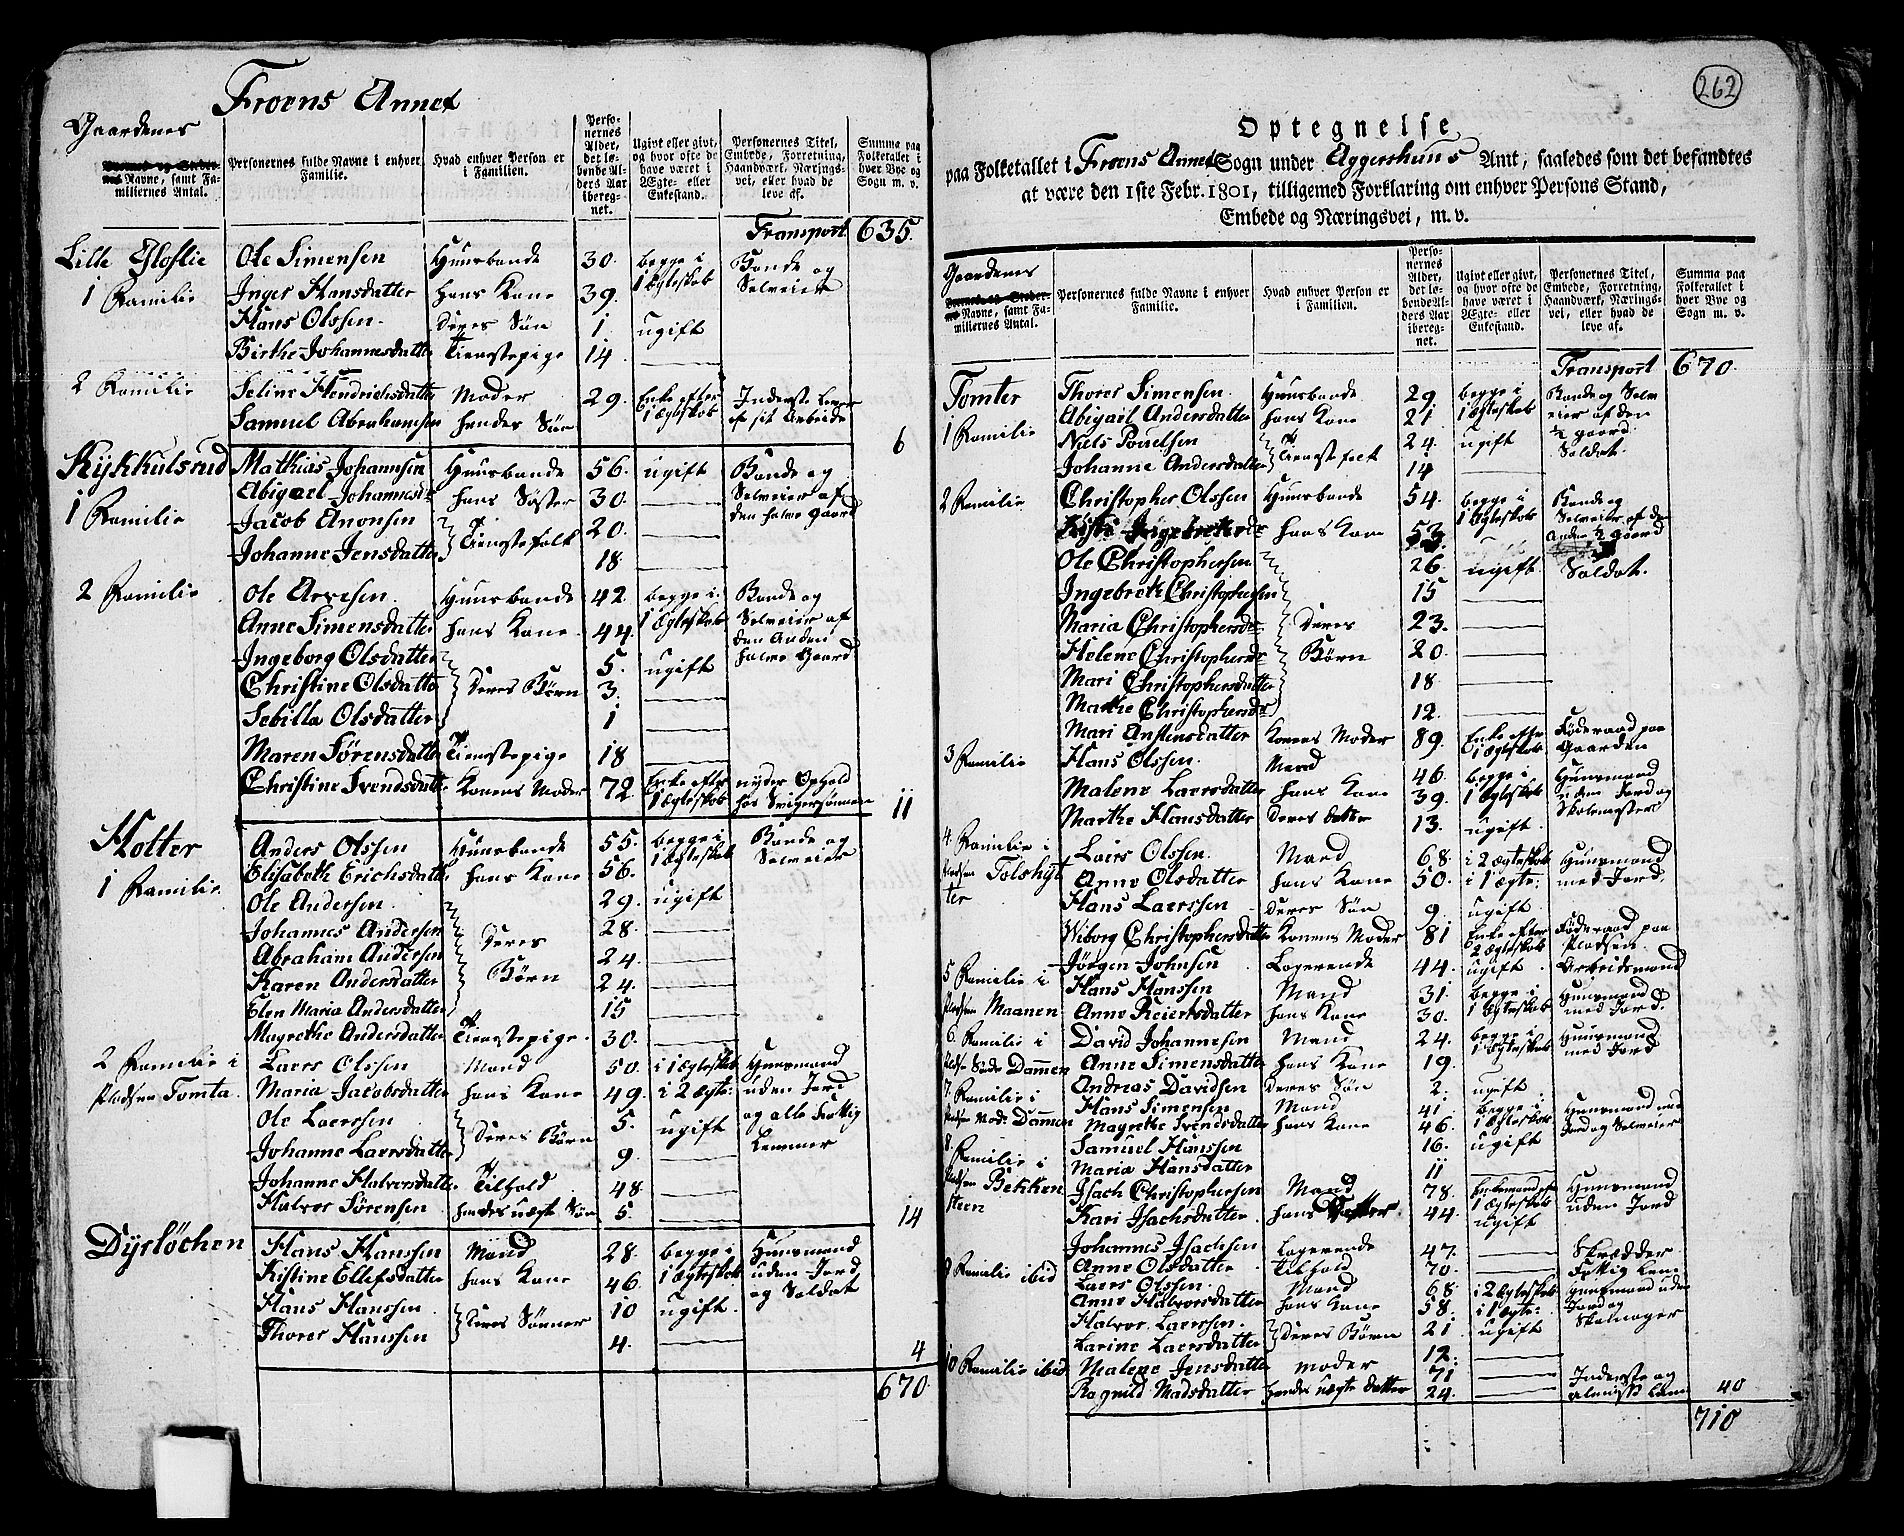 Froens Annex
Gaardenes
Navne, samt Familiernes Antal.
Personernes fulde Navne i enhver Familie.
Hvad enhver Person er i Familien.
Personernes Alder, det løbende Alders Aar iberegnet.
Ugivt eller givt, og hvor ofte de have været i Ægte- eller Enkestand.
Personernes Titel, Embede, Forretning, Haandværk, Næringsvei, eller hvad de leve af.
Summa paa Folketallet i hver Bye og Sogn m. v.
Transport 635.
Lille Ole Simensen Huusbonde 30. begge i Bonde og
1 Familie Inger Hansdatter hans Kone 39. 1 Ægteskab Selveier
Hans Olssen. Deres Søn 1. ugift
Birthe Johannesdatter Tienestepige 14
2 Familie Seline Hendrichsdatter Moder 29. Enke efter 1 Ægteskab Inderste lever
Samuel Abrahamsen hendes Søn af sit Arbeide
6
Kykkulsrud Mathias Johannsen Huusbonde 56. ugift Bonde og
Abigael Johannesdr hans Søster 30. Selveier af
1 Familie Jacob Anonsen Tienestefolk 20. den halve Gaard
Johanne Jensdatter 18
2 Familie Ole Arvesen. Huusbonde 42. begge i Bonde og
Anne Simensdatter hans Kone 44. 1 Ægteskab Selveier af
Ingeborg Olsdatter 5. ugift den Anden halve Gaard
Christine Olsdatter Deres Børn 3.
Sebilla Olsdatter 1
Maren Sørensdatter Tienestepige 18
Christine Svendsdatter Konens Moder 72 Enke efter 1 Ægteskab nyder Ophold hos Svigersønnen
11
Hotter Anders Olssen Huusbonde 55. begge i Bonde og
Elisabeth Erichsdatter hans Kone 56. 1 Ægteskab Selveier
1 Familie. Ole Andersen. 29. ugift
Johannes Andersen Deres 28.
Abraham Andersen 24.
Karen Andersdatter Børn 24.
Elen Maria Andersdatter 15
Magrethe Andersdatter Tienestepige. 30.
2 Familie i Laers Olssen Mand 50. i 1 Ægteskab Huusmand
Pladsen Tomta. Maria Jacobsdatter hans Kone 49. i 2 Ægte: uden Jord
Ole Laerssen Deres Børn 5. ugift og alle
Johanne Laersdatter 9. Lemmer
Johanne Halvorsdatter Tilhold 48.
Halvor Sørensen hendes uægte Søn 5.
14
Dyrløchen Hans Hanssen Mand 28. begge i Huusmand
Kistine Ellefsdatter hans Kone 46. 1 Ægteskab uden Jord
Hans Hanssen Deres Sønner 10 ugift. og Soldat
Thorer Hanssen 4.
4
670
262
Optegnelse
paa Folketallet i Froens Annex Sogn under Aggershuus Amt, saaledes som det befandtes
at være den 1ste Febr. 1801, tilligemed Forklaring om enhver Persons Stand,
Embede og Næringsvei, m. v.
Gaardenes
Navne, samt Familiernes Antal.
Personernes fulde Navne i enhver Familie.
Hvad enhver Person er i Familien.
Personernes Alder, det løbende Alders Aar iberegnet.
Ugivt eller givt, og hvor ofte de have været i Ægte- eller Enkestand.
Personernes Titel, Embede, Forretning, Haandværk, Næringsvei, eller hvad de leve af.
Summa paa Folketallet i hver Bye og Sogn m. v.
Transport 670.
Tomter Thorer Simensen. Huusbonde 29 begge i Bonde og Selv
Abigael Andersdatter hans Kone 21 1 Ægteskab eier af den
1 Familie Niels Pouelsen Tienestefolk 24. ugift ½ gaard. Soldat.
Johanne Andersdatter 14
2 Familie Christopher Olssen Huusbonde 54. begge i Bonde og
Ingebretsdr hans Kone 53. 1 Ægteskab Selveier af den Anden ½ Gaard
Ole Christophersen 26. ugift Soldat.
Ingebreth Christophersen 15
Maria Christophersdr Deres 23.
Helene Christophersdr Børn 20.
Mari Christophersdatter 18
Marthe Christophersdr 12.
Mari Anstensdatter Konens Moder 89. Enke efter 1 Ægteskab Føderaad paa Gaarden
3 Familie Hans Olssen. Mand 46. begge i Huusmand
Malene Laersdatter hans Kone 39. 1 Ægteskab uden Jord og
Marthe Hansdatter Deres datter 13. ugift. Skolemester
4 Familie i Laers Olssen. Mand 68. i 2 Ægteskab Huusmand
Pladsen Tolshytter Anne Olsdatter hans Kone 50. i 1 Ægte: med Jord.
Hans Laerssen Deres Søn 9. ugift
Wiborg Christophersdatter Konens Moder 81 Enke efter 2 Ægteskab Føderaad paa Pladsen.
Jørgen Johnsen Logerende 44. ugift. Arbeidsmand
5 Familie i Hans Hanssen Mand 31. begge i Huusmand
Pladsen Maanen Anne Reiersdatter hans Kone 30. 1 Ægteskab med Jord.
6. Familie i David Johannesen Mand 24. begge i Huusmand
Dammen Anne Simensdatter hans Kone 19. 1 Ægteskab med Jord
Andreas Davidsen Deres Søn 2. ugift
7. Familie i Hans Simensen Mand 41. begge i Huusmand med
Dammen Magrethe Svendsdatter hans Kone 46. 1 Ægteskab Jord og Selveier
Samuel Hanssen 16. ugift
8. Familie i Maria Hansdatter 11
Pladsen Bekkensteen Isach Christophersen Mand 78. 1 Ægteskab Huusmand
Kari Isachsdatter. hans Datter 44. ugift uden Jord
Johannes Isachsen Logerende 47. Skrædder
Anne Olsdatter Tilhold 70. Lem
9 Familie ibid Laers Olssen. Mand 68. i 2 Ægteskab Huusmand uden
Anne Halvorsdatter hans Kone 58. i 1 Ægte: Jord og
Halvor Laerssen. Deres Børn 21. ugift Skolmager
Larine Laersdatter 12.
10 Familie ibid Malene Jensdatter Moder 71 Inderste og
Ragnild Madsdatter hendes uægte datter 24. Lem
40
710